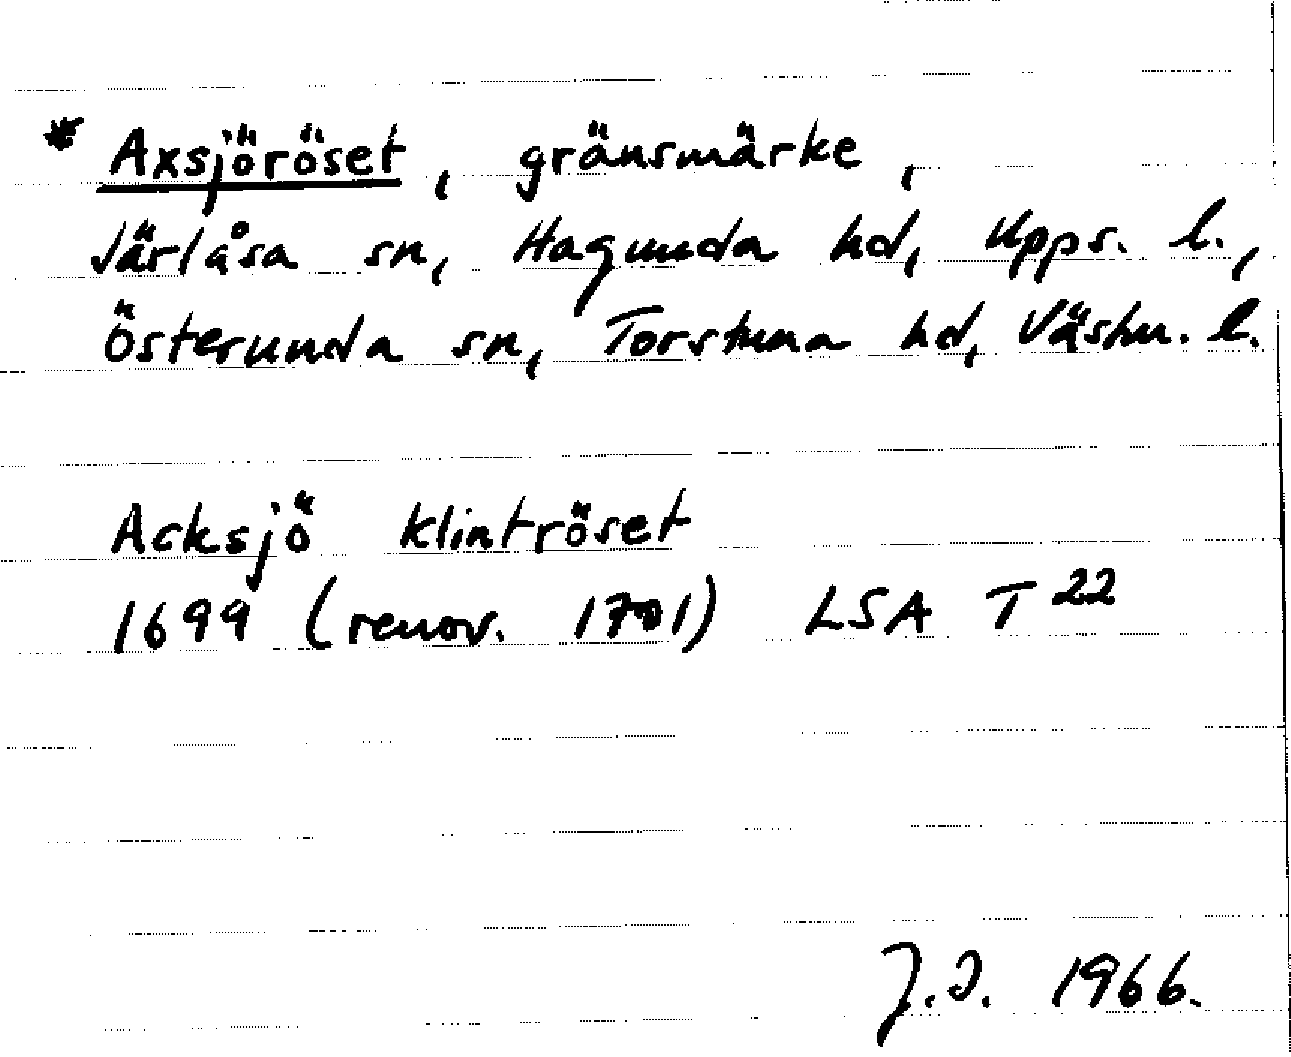 * Axsjöröset, gränsmärke,
Järlåsa sn, Hagunda hd, Upps. l.,
Österunda sn, Torstuna hd, Västm. l.
Acksjö klintröset
1699 (renov. 1701) LSA T 22
J.I. 1966.